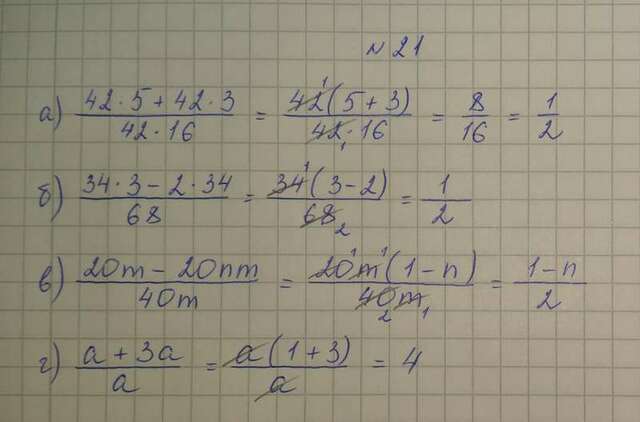 № 21
а) (42·5+42·3)/(42·16) = (42(5+3))/(42·16) = 8/16 = 1/2
б) (34·3−2·34)/68 = (34(3−2))/68 = 1/2
в) (20m−20nm)/40m = (20m(1−n))/40m = (1−n)/2
г) (a+3a)/a = (a(1+3))/a = 4